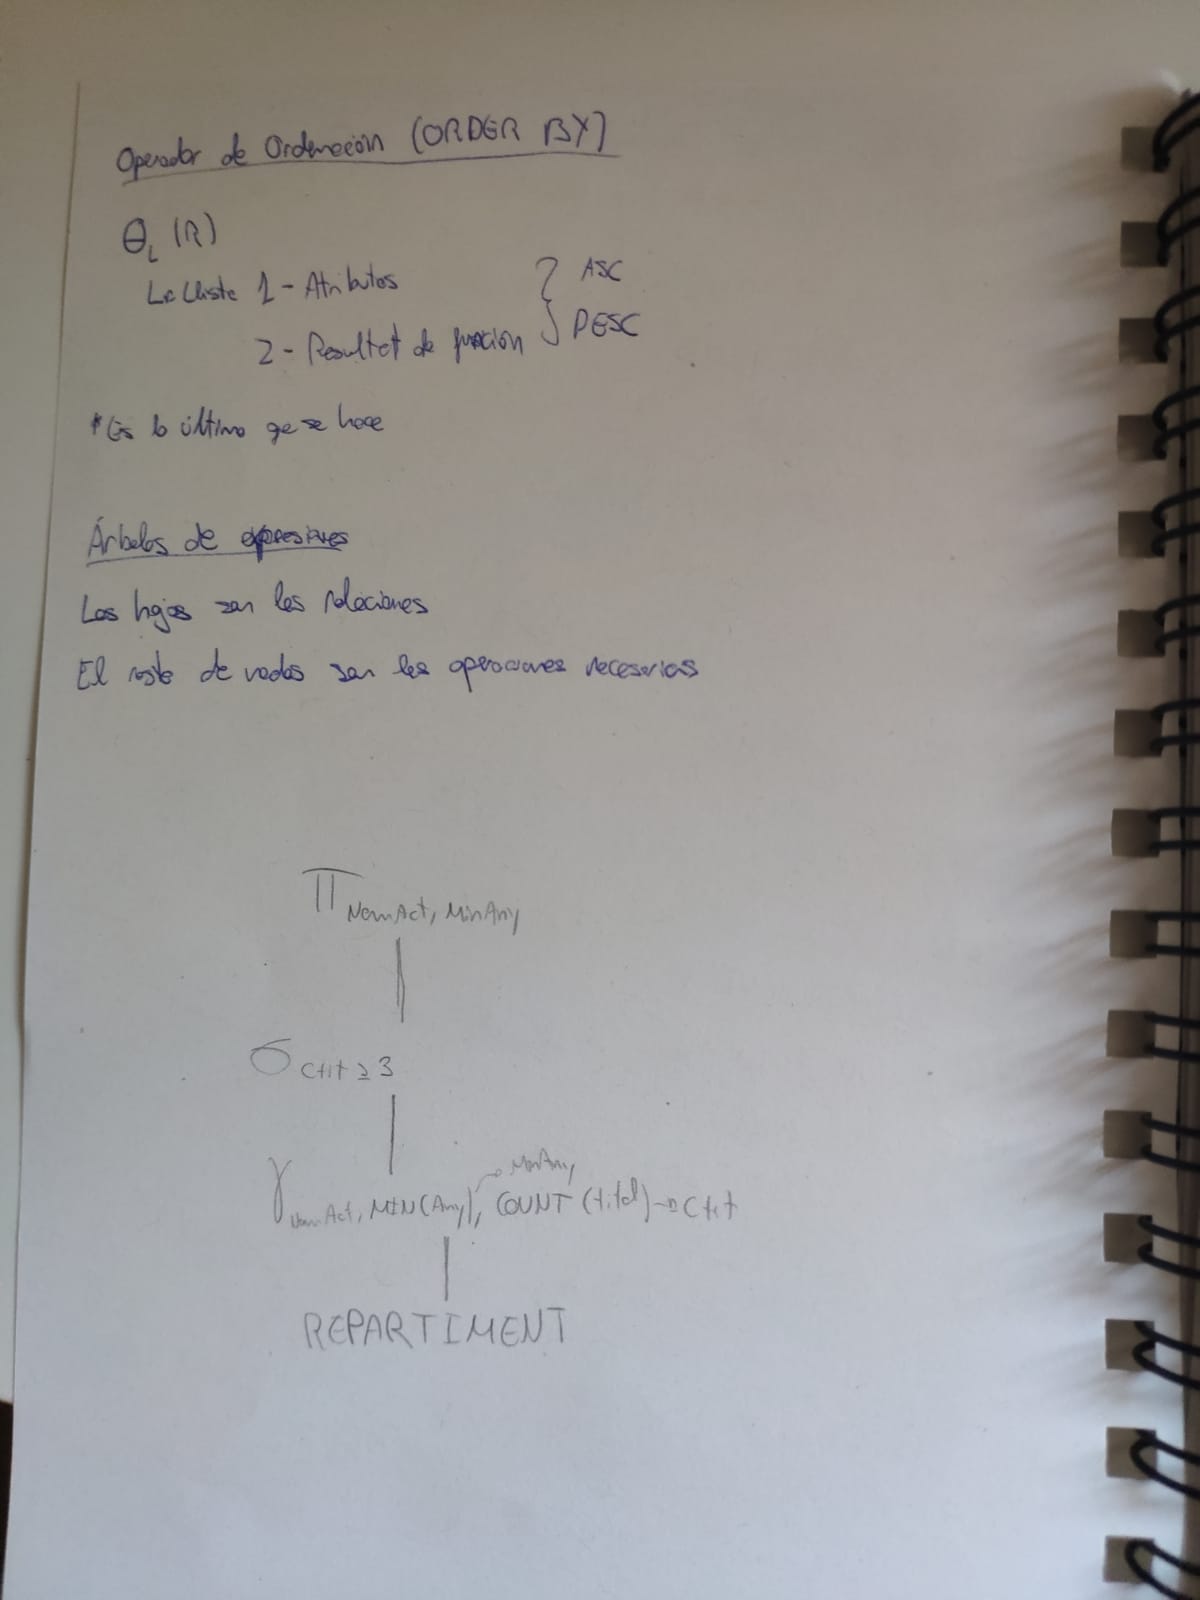 Operador de Ordenación (ORDER BY)
Θ_L (R)
L: Llista 1 - Atributos } ASC
2 - Resultat de función } DESC
* Es lo último qe se hace
Árboles de expresiones
Las hojas son las relaciones
El resto de nodos son las operaciones necesarias
Π NomAct, MinAny
σ Ctit ≥ 3
→ MinAny
γ NomAct, MIN(Any), COUNT (titol) → Ctit
REPARTIMENT